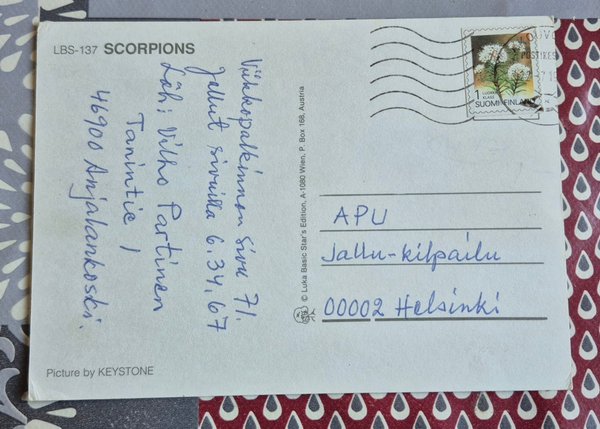 LBS-137 SCORPIONS
Viikkopalkinnon sivu 71.
Jallut sivuilla 6.34,67
Läh: Vilho Partinen
Tamintie 1
46900 Anjalankoski.
Picture by KEYSTONE
© Luka Basic Star's Edition, A-1080 Wien, P. Box 168, Austria
1 LUOKKA KLASS
SUOMI FINLAND
APU
Jallu-kilpailu
00002 Helsinki